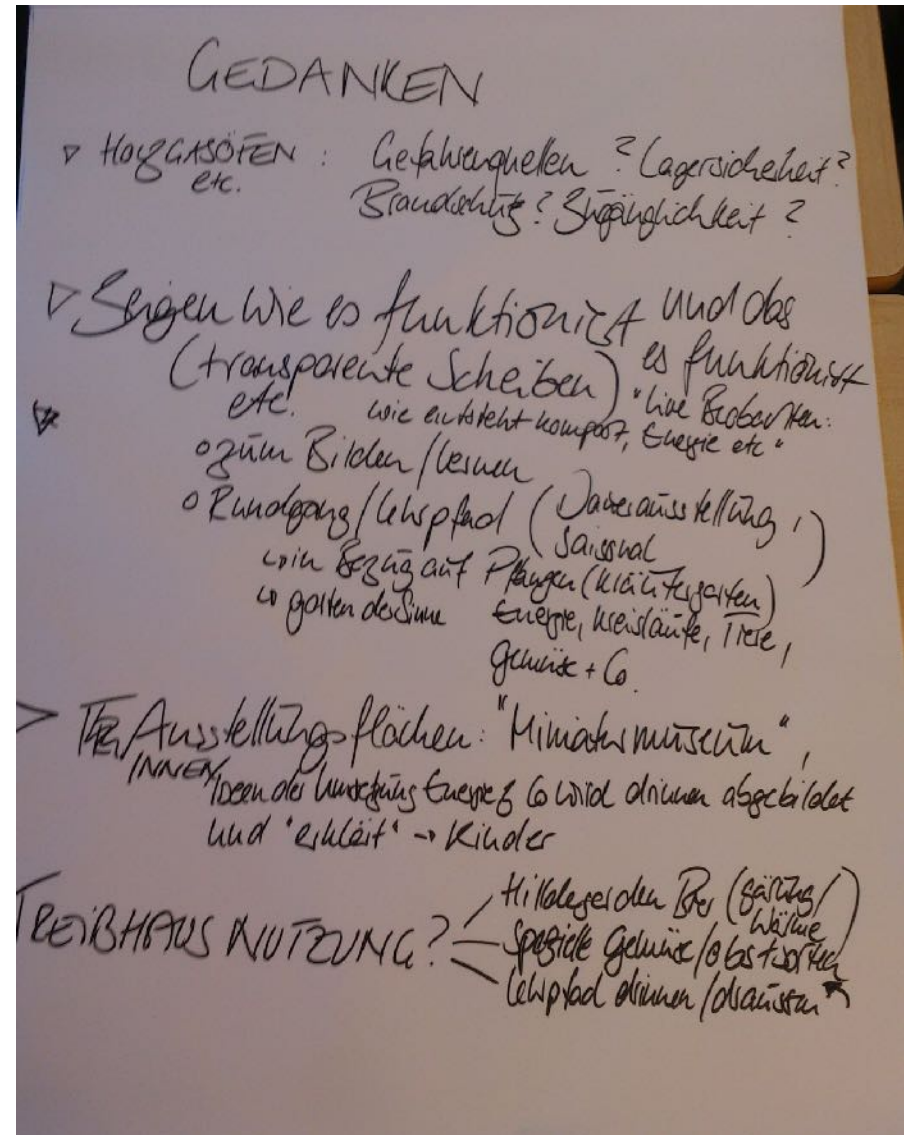 GEDANKEN
▷ HOLZGASÖFEN : Gefahrenquellen ? Lagersicherheit?
etc. Brandschutz? Zugänglichkeit ?
▷ Zeigen wie es funktioniert und das
(transparente Scheiben) es funktioniert
etc. "live Beobachten:
wie entsteht kompost, Energie etc"
o zum Bilden / lernen
o Rundgang / Lehrpfad ( Dauerausstellung,
saisonal )
↳ in Bezug auf Pflanzen (kräutergarten)
↳ garten der Sinne Energie, kreisläufe, Tiere,
gemüse + Co.
> Ausstellungsflächen: "Miniaturmuseum",
INNEN
Ideen der Umsetzung Energie & Co wird drinnen abgebildet
und "erklärt" → Kinder
TREIBHAUS NUTZUNG? (gärung/
wärme)
– spezielle gemüse/obstsorten
– Lehrpfad drinnen/draussen